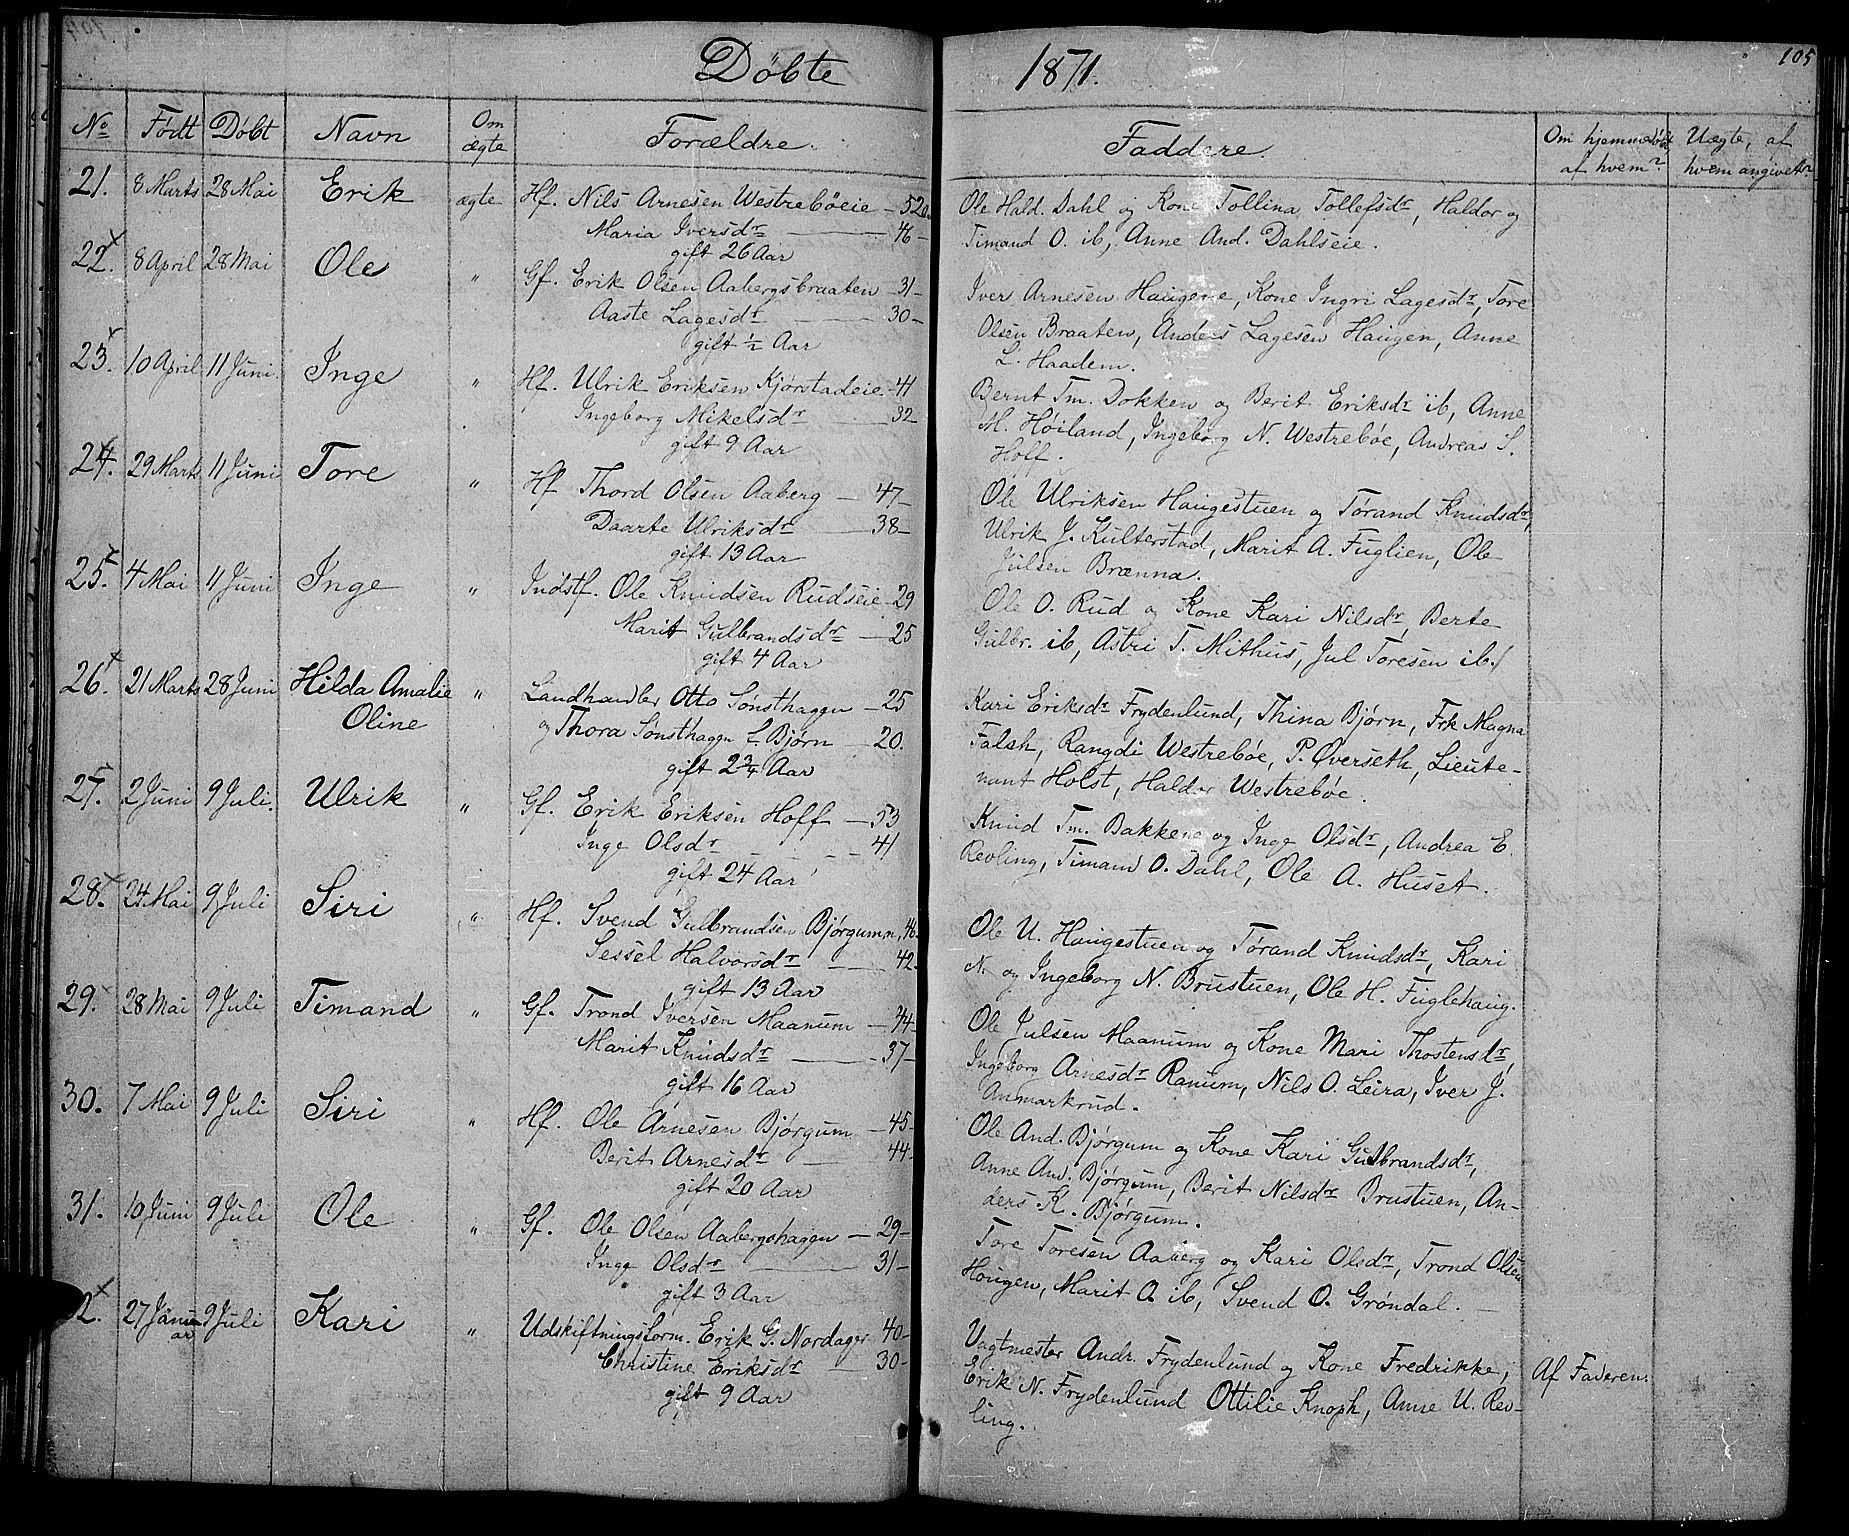 Döbte 1871. 105
No Födt Döbt Navn Om ægte Forældre. Faddere. Om hjemmedöbt, af hvem? Uægte, af hvem angivet?
21. 8 Marts 28 Mai Erik ægte Hf. Nils Arnesen Westreböeie – 52
Maria Iversdr – 46 –
gift 26 Aar
Ole Hald. Dahl og Kone Tollina Tollefsdr, Haldor og
Timand O. ib, Anne And. Dahlseie.
22. 8 April 28 Mai Ole " Gf. Erik Olsen Aabergsbraaten – 31 –
Aaste Lagesdr – 30 –
gift ½ Aar
Iver Arnesen Haugene, Kone Ingri Lagesdr, Tore
Olsen Braaten, Anders Lagesen Haugen, Anne
L. Haadem.
23. 10 April 11 Juni. Inge " Hf. Ulrik Eriksen Kjörstadeie – 41
Ingeborg Mikelsdr – 32
gift 9 Aar
Bernt Tm. Dokken og Berit Eriksdr ib, Anne
M. Höiland, Ingeborg N. Westreböe, Andreas S.
Hoff.
24. 29 Marts 11 Juni Tore " Hf Thord Olsen Aaberg – 47 –
Daarte Ulriksdr – 38 –
gift 13 Aar
Ole Ulriksen Haugestuen og Törand Knudsdr,
Ulrik J. Kulterstad, Marit A. Fuglien, Ole
Julsen Brænna.
25. 4 Mai 11 Juni Inge " Indstf. Ole Knudsen Rudseie – 29
Marit Gulbrandsdr – 25
gift 4 Aar
Ole O. Rud og Kone Kari Nilsdr, Berte
Gulbr. ib, Astri T. Mithus, Jul Toresen ib.
26. 21 Marts 28 Juni Hilda Amalie " Landhandler Otto Sönsthagen – 25
Oline og Thora Sönsthagen f. Björn – 20.
gift 2¾ Aar
Kari Eriksdr Frydenlund, Thina Björn, Frk Magna
Falsh, Rangdi Westreböe, P. Överseth, Lieute-
nant Holst, Haldor Westreböe.
27. 2 Juni 9 Juli. Ulrik " Gf. Erik Eriksen Hoff – 53
Inge Olsdr – 41
gift 24 Aar
Knud Tm. Bakkene og Inge Olsdr, Andrea E.
Revling, Timand O. Dahl, Ole A. Huset.
28. 24. Mai 9 Juli Siri " Hf. Svend Gulbrandsen Björgum, 46.
Sessel Halvorsdr – 42.
gift 13 Aar
Ole U. Haugestuen og Törand Knudsdr, Kari
N. og Ingeborg N. Brustuen, Ole H. Fuglehaug.
29. 28 Mai 9 Juli Timand " Gf. Trond Iversen Maanum – 44 –
Marit Knudsdr – 37 –
gift 16 Aar
Ole Julsen Maanum og Kone Mari Thostensdr,
Ingeborg Arnesdr Ranum, Nils O. Leira, Iver J.
Anmarkrud.
30. 7 Mai 9 Juli Siri " Hf. Ole Arnesen Björgum – 45 –
Berit Arnesdr – 44 –
gift 20 Aar
Ole And. Björgum og Kone Kari Gulbrandsdr,
Anne And. Björgum, Berit Nilsdr Brustuen, An-
ders K. Björgum.
31. 10 Juni 9 Juli Ole " Gf. Ole Olsen Aabergshagen – 29 –
Inge Olsdr – 31 –
gift 3 Aar
Tore Toresen Aaberg og Kari Olsdr, Trond Olsen
Hougen, Marit O. ib, Svend O. Gröndal. –
2. 27 Janu- 9 Juli Kari " Udskiftningsform. Erik G. Nordager 40 –
ar Christine Eriksdr – 30 –
gift 9 Aar
Vagtmester Andr. Frydenlund og Kone Fredrikke, Af Faderen.
Erik N. Frydenlund Ottilie Knoph, Anne U. Rev-
ling.